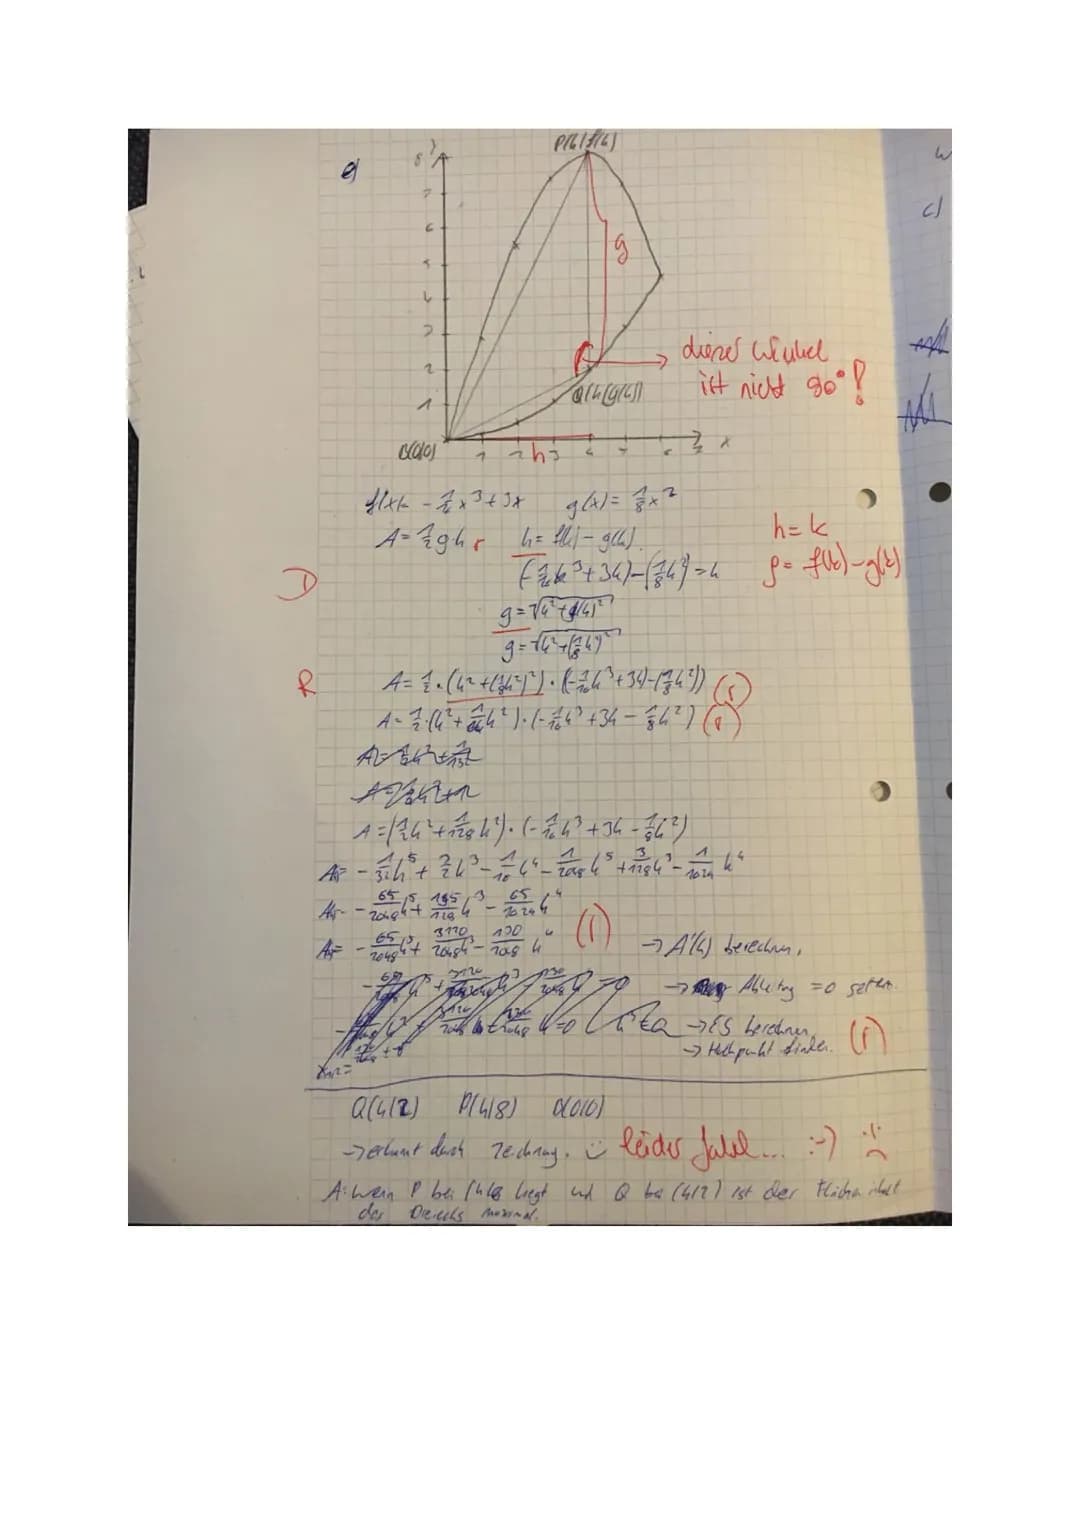 e)
y
P(k|f(k))
8
7
6
5
4
3
2
1
g
dieser Winkel
ist nicht 90° !
Q(k|g(k))
O(0|0)
1 2 h 3 4 5 6 7 x
c)
f(x)= -1/16 x³+3x g(x)= 1/8 x²
A= 1/2 g·h r h= f(k)-g(k)
h= k
(-1/16 k³+3k)-(1/8 k²)=h
g= f(k)-g(k)
D
g=√k²+g(k)²
g=√k²+(1/8 k²)²
R
A= 1/2·(k²+(1/8k²)²)·((-1/16k³+3k)-(1/8k²)) (r)
A= 1/2·(k²+1/64k²)·(-1/16k³+3k-1/8k²) (r)
A=(1/2k²+1/128k²)·(-1/16k³+3k-1/8k²)
A= -1/32k⁵+3/2k³-1/16k⁴-1/2048k⁵+3/128k³-1/1024k⁴
A= -65/2048k⁵+195/128k³-65/1024k⁴
A= -65/2048k⁵+3120/2048k³-130/2048k⁴ (r)
→ A'(k) berechnen,
→ Ableitung =0 setzen.
→ ES berechnen,
→ Hochpunkt finden. (r)
Q(4|2) P(4|8) O(0|0)
→ erkannt durch Zeichnung. leider falsch... :-)
A: wenn P bei (4|8 liegt und Q bei (4|2) ist der Flächeninhalt
des Dreiecks maximal.